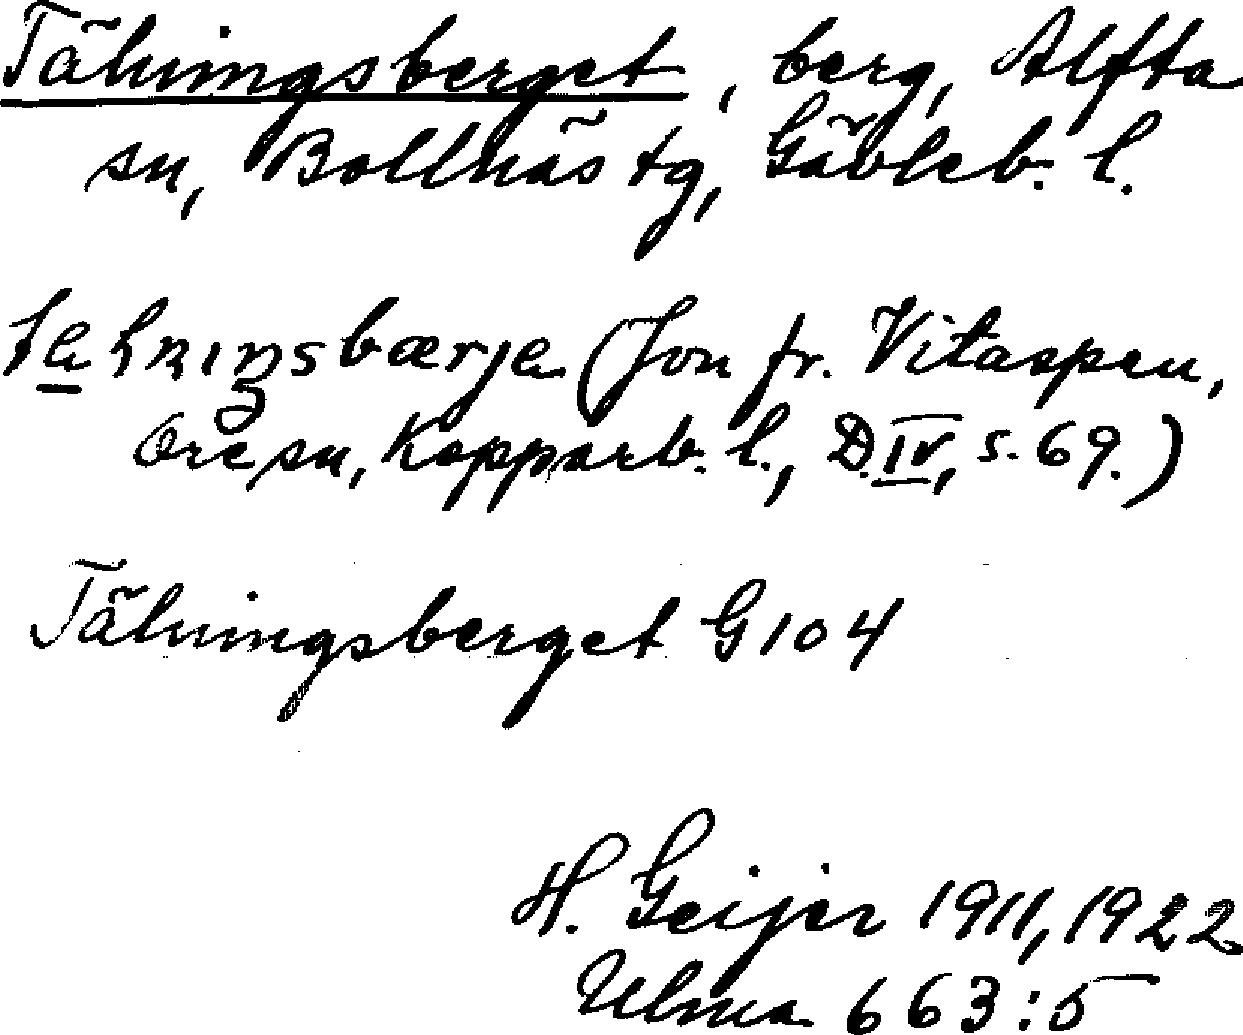 Tälningsberget, berg, Alfta
sn, Bollnäs tg, Gävleb. l.
(Jon fr. Vitaspen,
Ore sn, Kopparb. l., D.IV, s. 69.)
Tälningsberget G104
H. Geijer 1911, 1922
Ulma 663:5